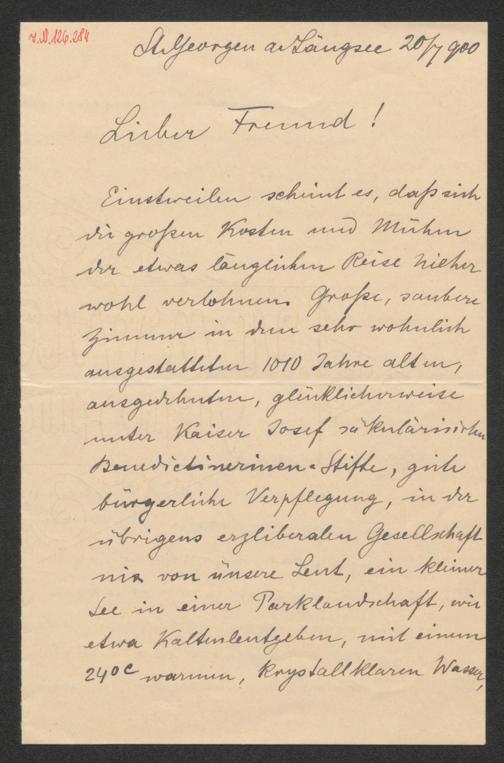 I.N. 126.284
St. Georgen a. Längsee 20/7 900
Lieber Freund!
Einstweilen scheint es, daß sich
die großen Kosten und Mühen
der etwas länglichen Reise hieher
wohl verlohnen. Große, saubere
Zimmer in dem sehr wohnlich
ausgestatteten 1010 Jahre alten,
ausgedehnten, glücklicherweise
unter Kaiser Josef säkularisirten
Benedictinerinen-Stifte, gute
bürgerliche Verpflegung, in der
übrigens erzliberalen Gesellschaft
von unsere Leut, ein kleiner
See in einer Parklandschaft, wie
etwa Kaltenleutgeben, mit einem
24°C warmen, krystallklaren Wasser,